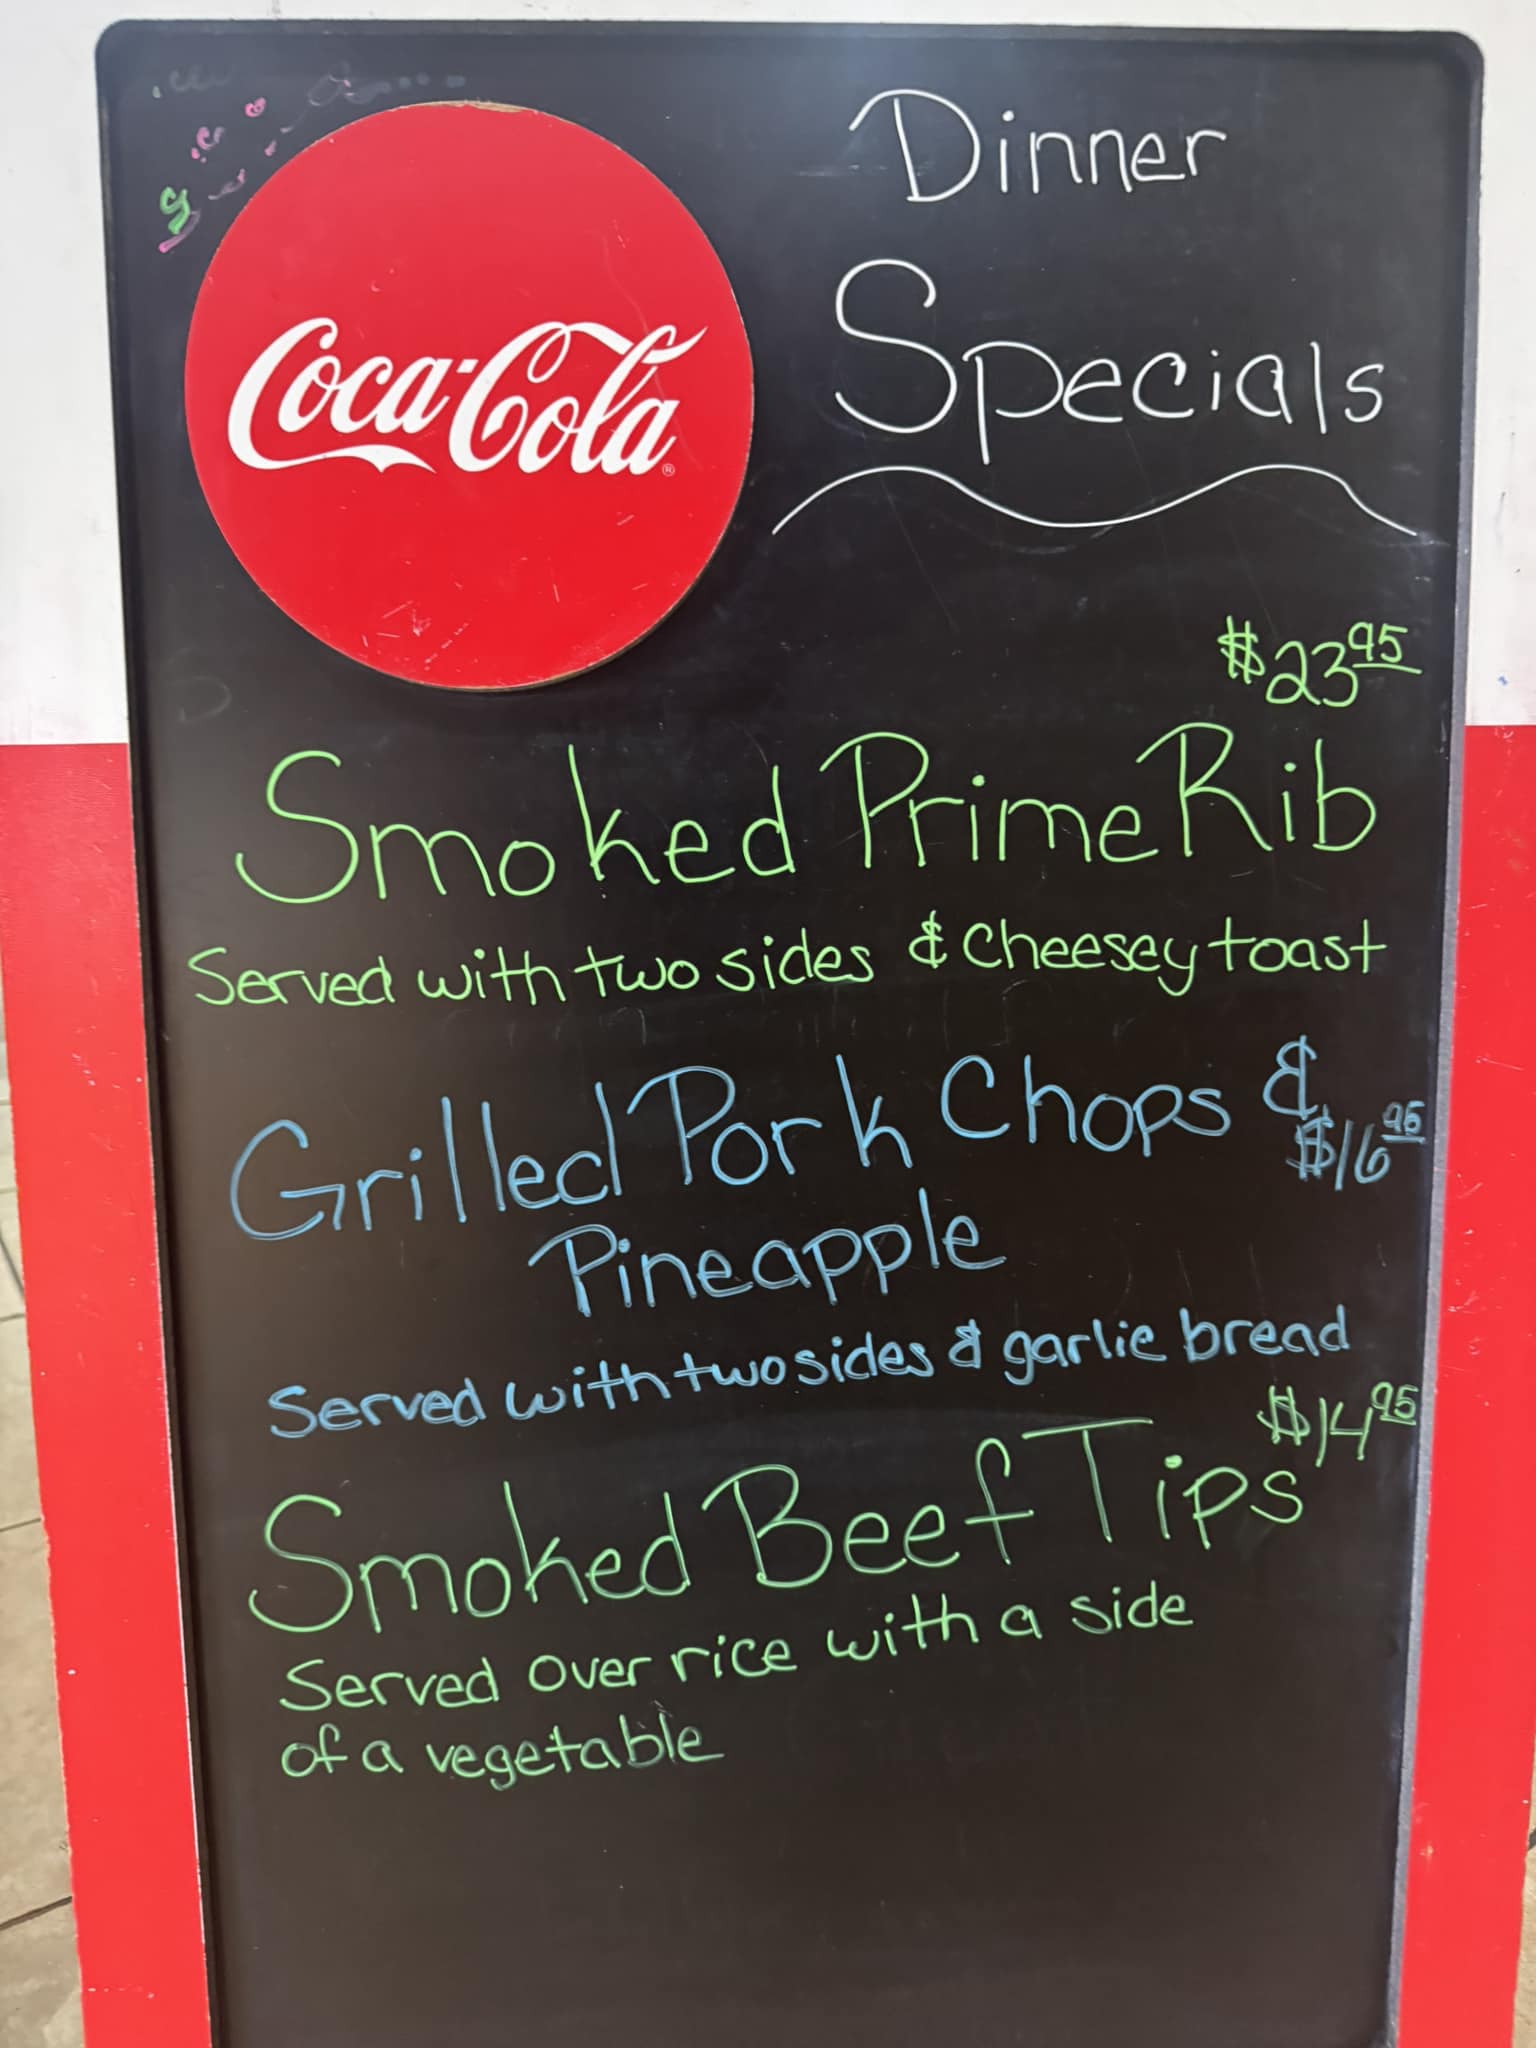 Coca-Cola
Dinner
Specials
$23 95
Smoked Prime Rib
Served with two sides & cheesey toast
Grilled Pork Chops &
$16 95
Pineapple
Served with two sides & garlic bread
$14 95
Smoked Beef Tips
Served over rice with a side
of a vegetable